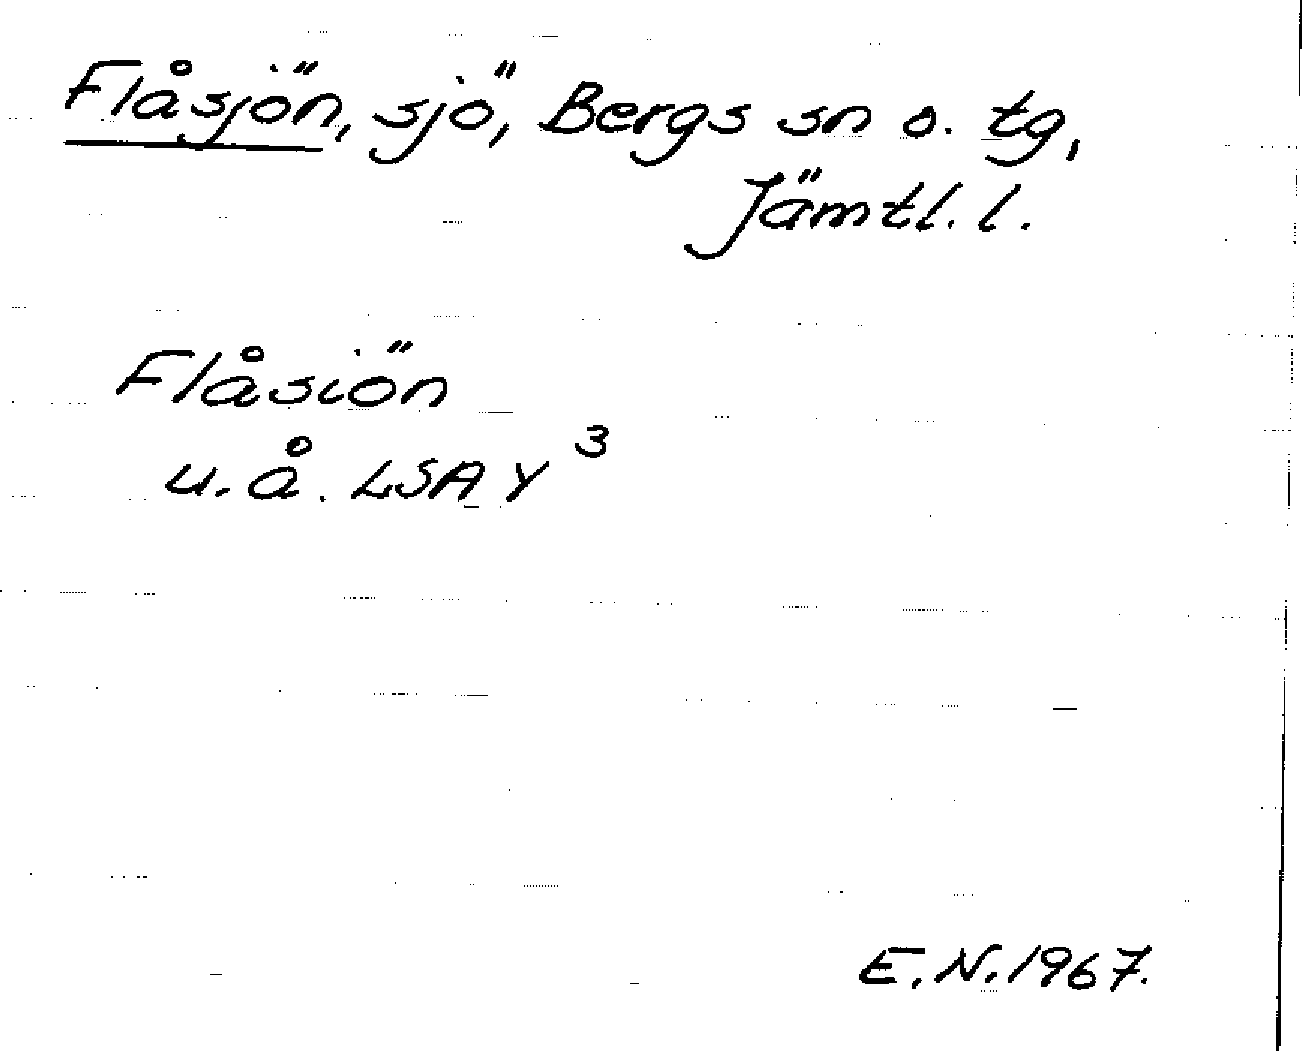 Flåsjön, sjö, Bergs sn o. tg,
Jämtl. l.
Flåsiön
u. å. LSA Y³
E. N. 1967.